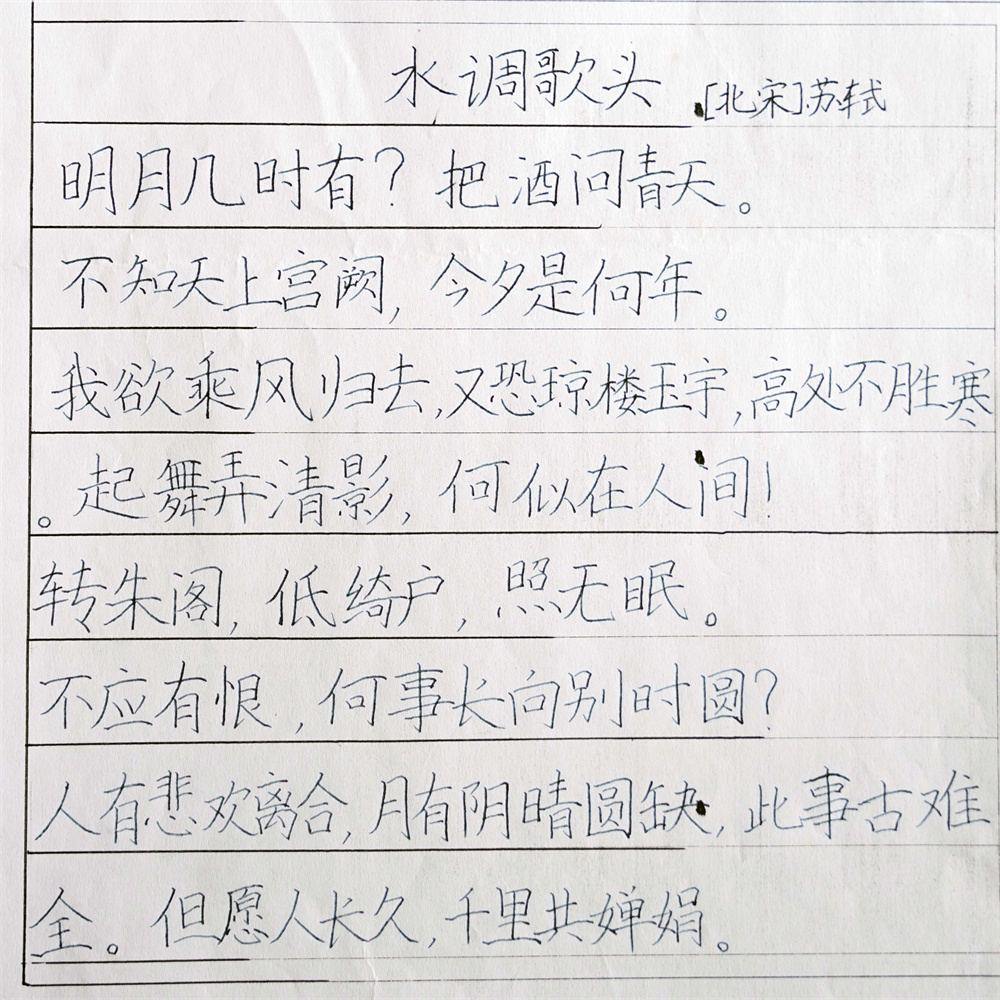 水调歌头 [北宋]苏轼
明月几时有？把酒问青天。
不知天上宫阙,今夕是何年。
我欲乘风归去,又恐琼楼玉宇,高处不胜寒
。起舞弄清影,何似在人间!
转朱阁,低绮户,照无眠。
不应有恨,何事长向别时圆?
人有悲欢离合,月有阴晴圆缺,此事古难
全。但愿人长久,千里共婵娟。